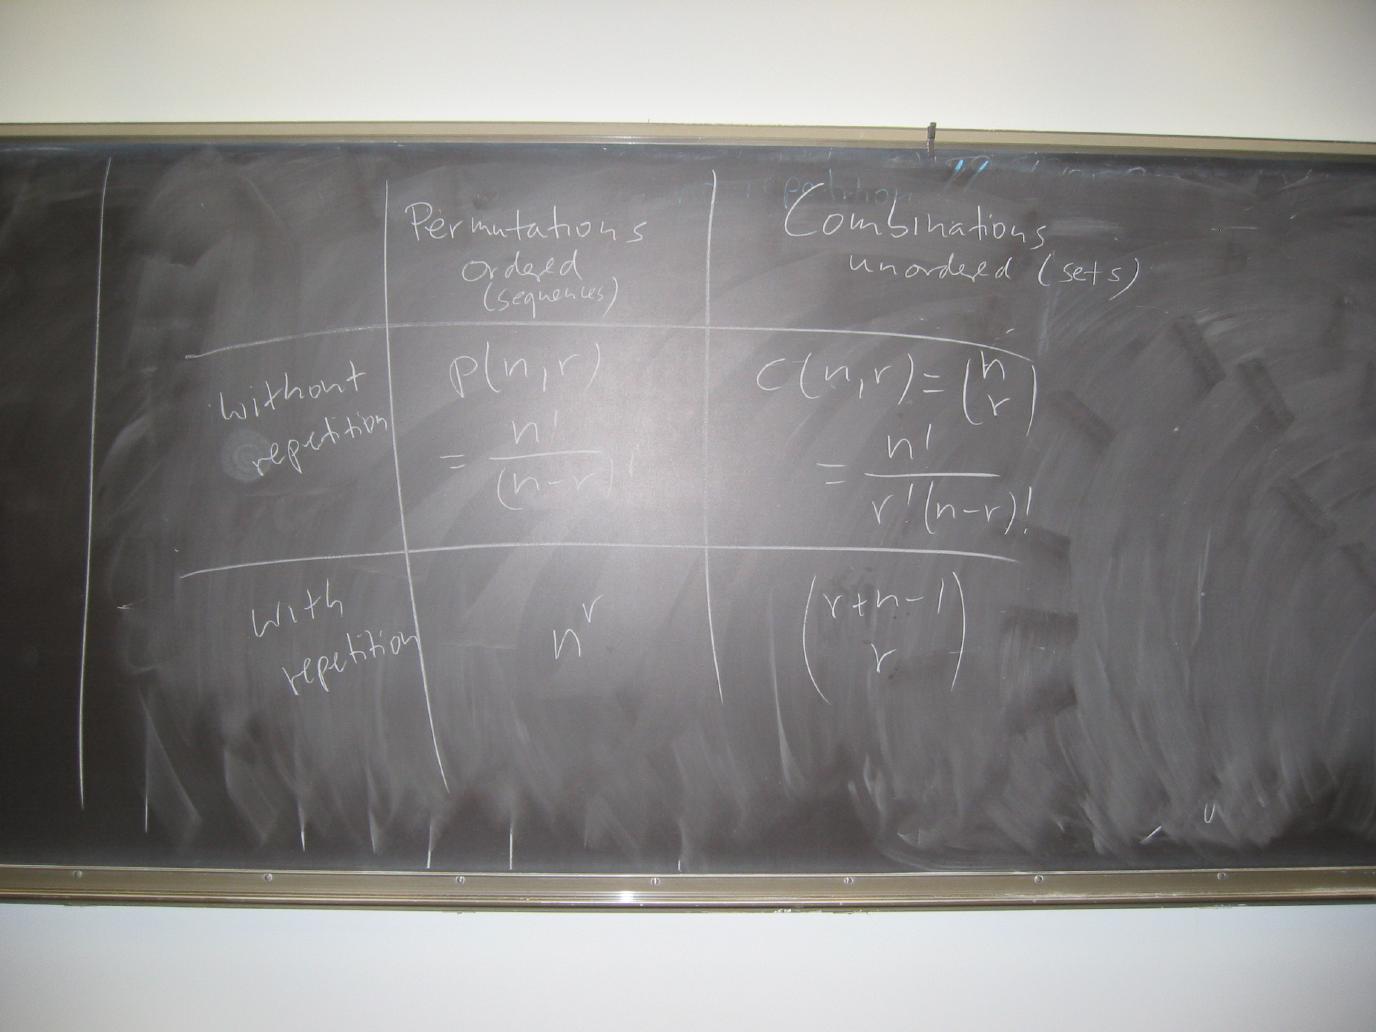 Permutations
ordered
(sequences)
Combinations
unordered (sets)
without
repetition
P(n,r)
= n! / (n-r)!
C(n,r) = (n r)
= n! / r!(n-r)!
with
repetition
n^r
(r+n-1 r)